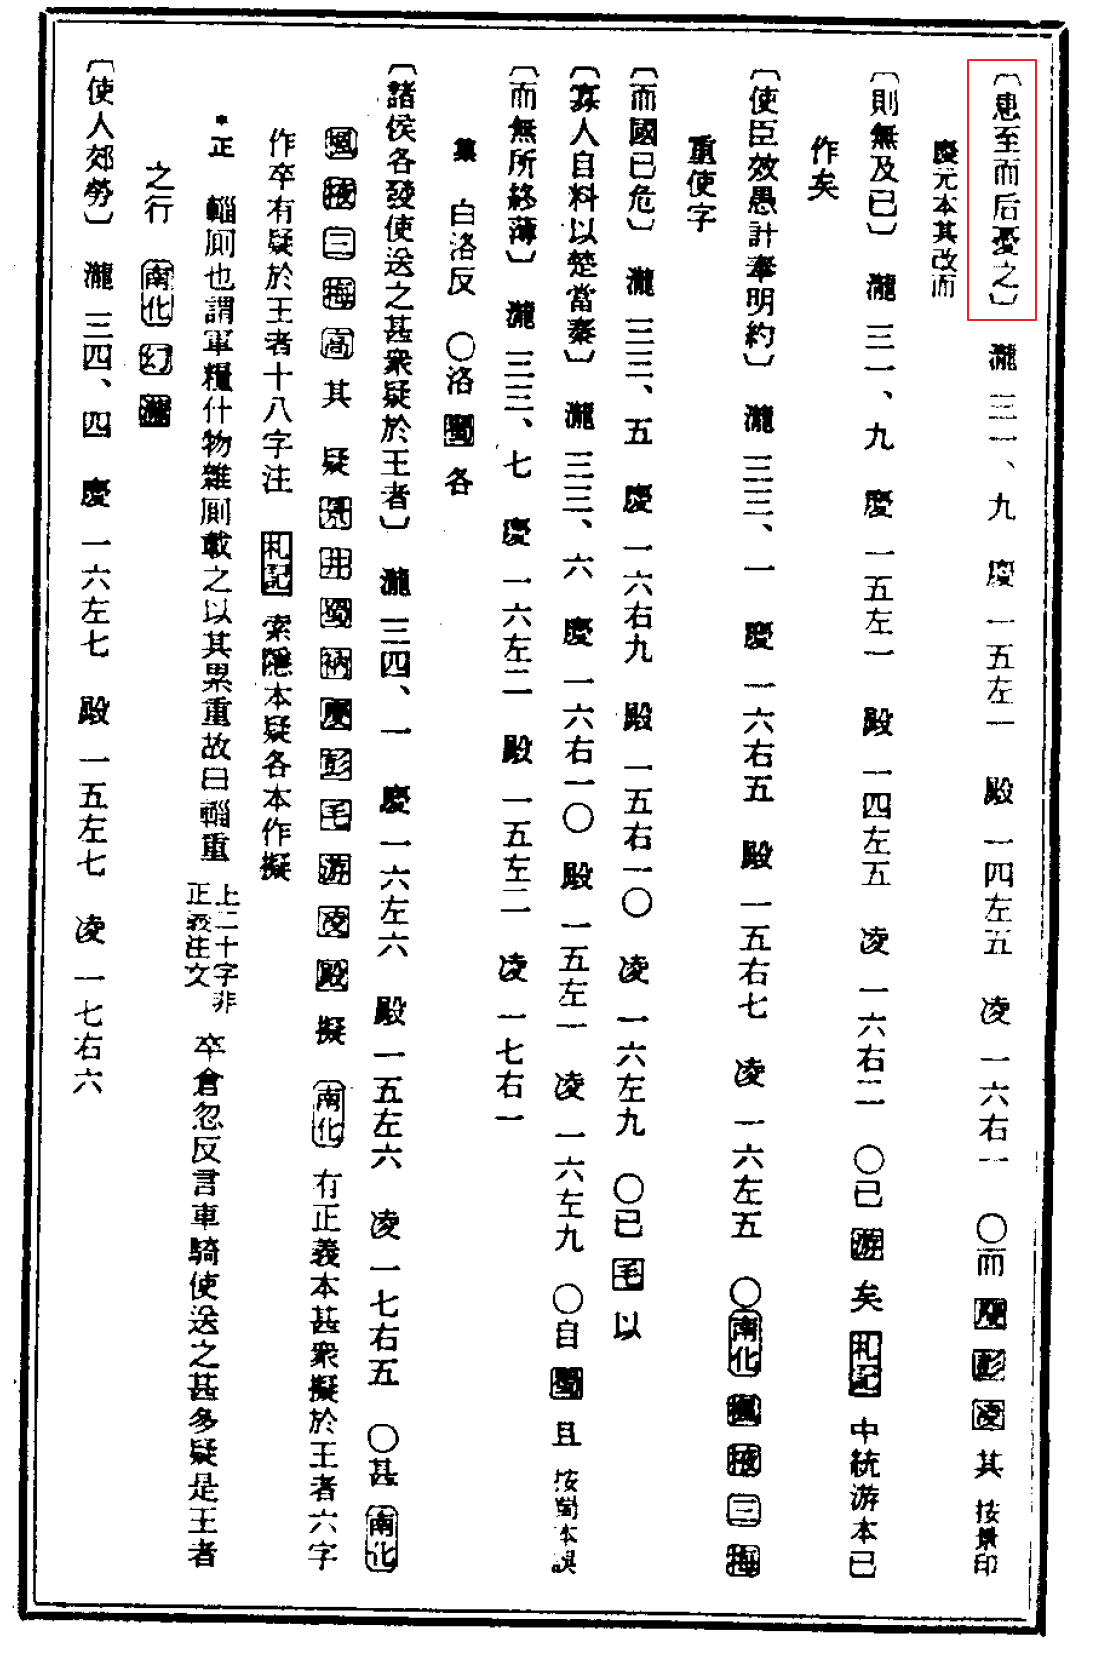 〔患至而后憂之〕 瀧 三一、九 慶 一五左一 殿 一四左五 凌 一六右一 ○而 慶 彭 凌 其 按景印
慶元本其改而
〔則無及已〕 瀧 三一、九 慶 一五左一 殿 一四左五 凌 一六右二 ○已 游 矣 札記 中統游本已
作矣
〔使臣效愚計奉明約〕 瀧 三三、一 慶 一六右五 殿 一五右七 凌 一六左五 ○南化 楓 棭 三 梅
重使字
〔而國已危〕 瀧 三三、五 慶 一六右九 殿 一五右一○ 凌 一六左九 ○已 毛 以
〔寡人自料以楚當秦〕 瀧 三三、六 慶 一六右一○ 殿 一五左一 凌 一六左九 ○自 蜀 且 按蜀本誤
〔而無所終薄〕 瀧 三三、七 慶 一六左二 殿 一五左二 凌 一七右一
集 白洛反 ○洛 蜀 各
〔諸侯各發使送之甚衆疑於王者〕 瀧 三四、一 慶 一六左六 殿 一五左六 凌 一七右五 ○甚 南化
楓 棭 三 梅 高 其 疑 井 蜀 衲 慶 彭 毛 游 凌 殿 擬 南化 有正義本甚衆擬於王者六字
作卒有疑於王者十八字注 札記 索隱本疑各本作擬
*正 輜厠也謂軍糧什物雜厠載之以其累重故曰輜重 上二十字非正義注文 卒倉忽反言車騎使送之甚多疑是王者
之行 南化 幻 瀧
〔使人郊勞〕 瀧 三四、四 慶 一六左七 殿 一五左七 凌 一七右六